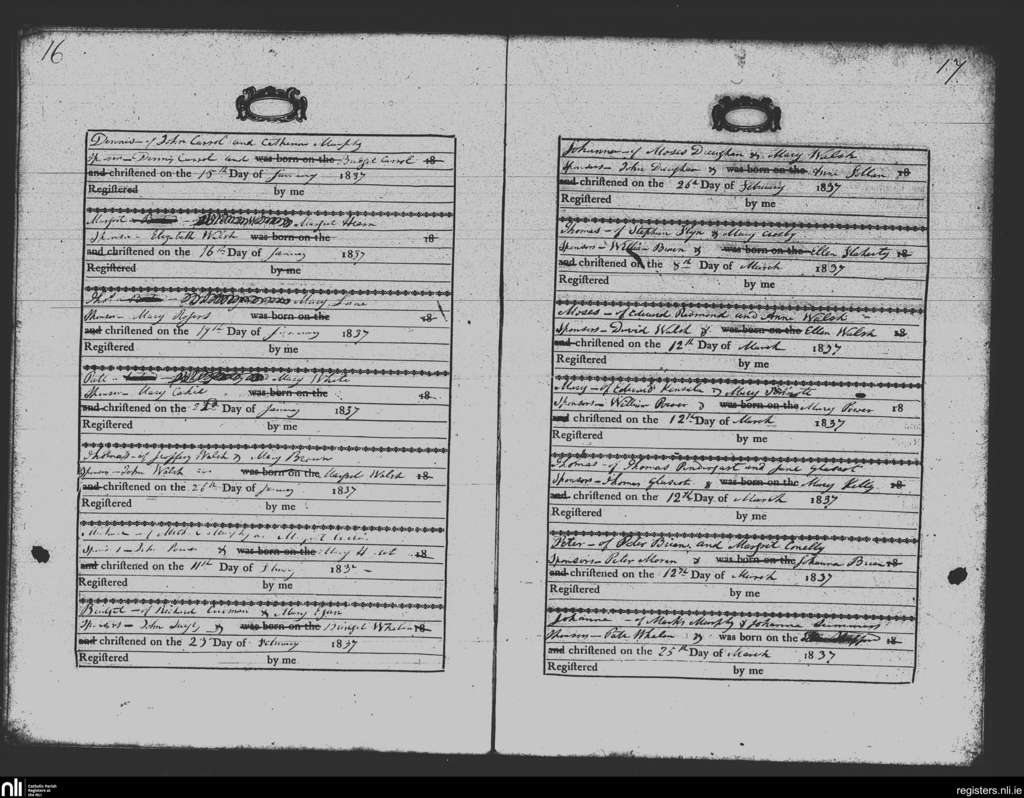 16
Dennis - of John Carrol and Catherine Murphy
Sponsors - Dennis Carrol and was born on the Bridget Carrol 18
and christened on the 15th Day of January 1837
Registered by me
Margret Margret Hearn
Sponsor - Elizabeth Walsh was born on the 18
and christened on the 16th Day of January 1837
Registered by me
Thos. Mary Lane
Sponsor - Mary Rogers was born on the 18
and christened on the 19th Day of January 1837
Registered by me
Patk Mary White
Sponsor - Mary Cahil was born on the 18
and christened on the Day of January 1837
Registered by me
Thomas - of Jeffrey Walsh & Mary Brown
Sponsors - John Walsh was born on the Margret Walsh 18
and christened on the 26th Day of January 1837
Registered by me
of Murphy
John Power & was born on the Mary 18
and christened on the 11th Day of 183
Registered by me
Bridget - of Richard & Mary Egan
Sponsors - John & was born on the Bridget Whelan 18
and christened on the 23 Day of February 1837
Registered by me
17
Johanna - of Moses Deeghan & Mary Walsh
Sponsors - John Deeghan & was born on the Anne 18
and christened on the 26th Day of February 1837
Registered by me
Thomas - of Stephen Flyn & Mary Crosby
Sponsors - William Brien & was born on the Ellen Flaherty 18
and christened on the 8th Day of March 1837
Registered by me
Moses - of Edward Redmond and Anne Walsh
Sponsors - David Walsh & was born on the Ellen Walsh 18
and christened on the 12th Day of March 1837
Registered by me
Mary - of Edward Kensela & Mary
Sponsors - William Power & was born on the Mary Power 18
and christened on the 12th Day of March 1837
Registered by me
Thomas - of Thomas Pendergast and Jane Glascot
Sponsors - Thomas Glascot & was born on the Mary Kelly 18
and christened on the 12th Day of March 1837
Registered by me
Peter - of Peter Brien and Margret Conelly
Sponsors - Peter Moran & was born on the Johanna Brien 18
and christened on the 12th Day of March 1837
Registered by me
Johanna - of Marks Murphy & Johanna Simmons
Sponsors - Patk Whelan & was born on the 18
and christened on the 25th Day of March 1837
Registered by me
nli Catholic Parish Registers at the NLI
registers.nli.ie